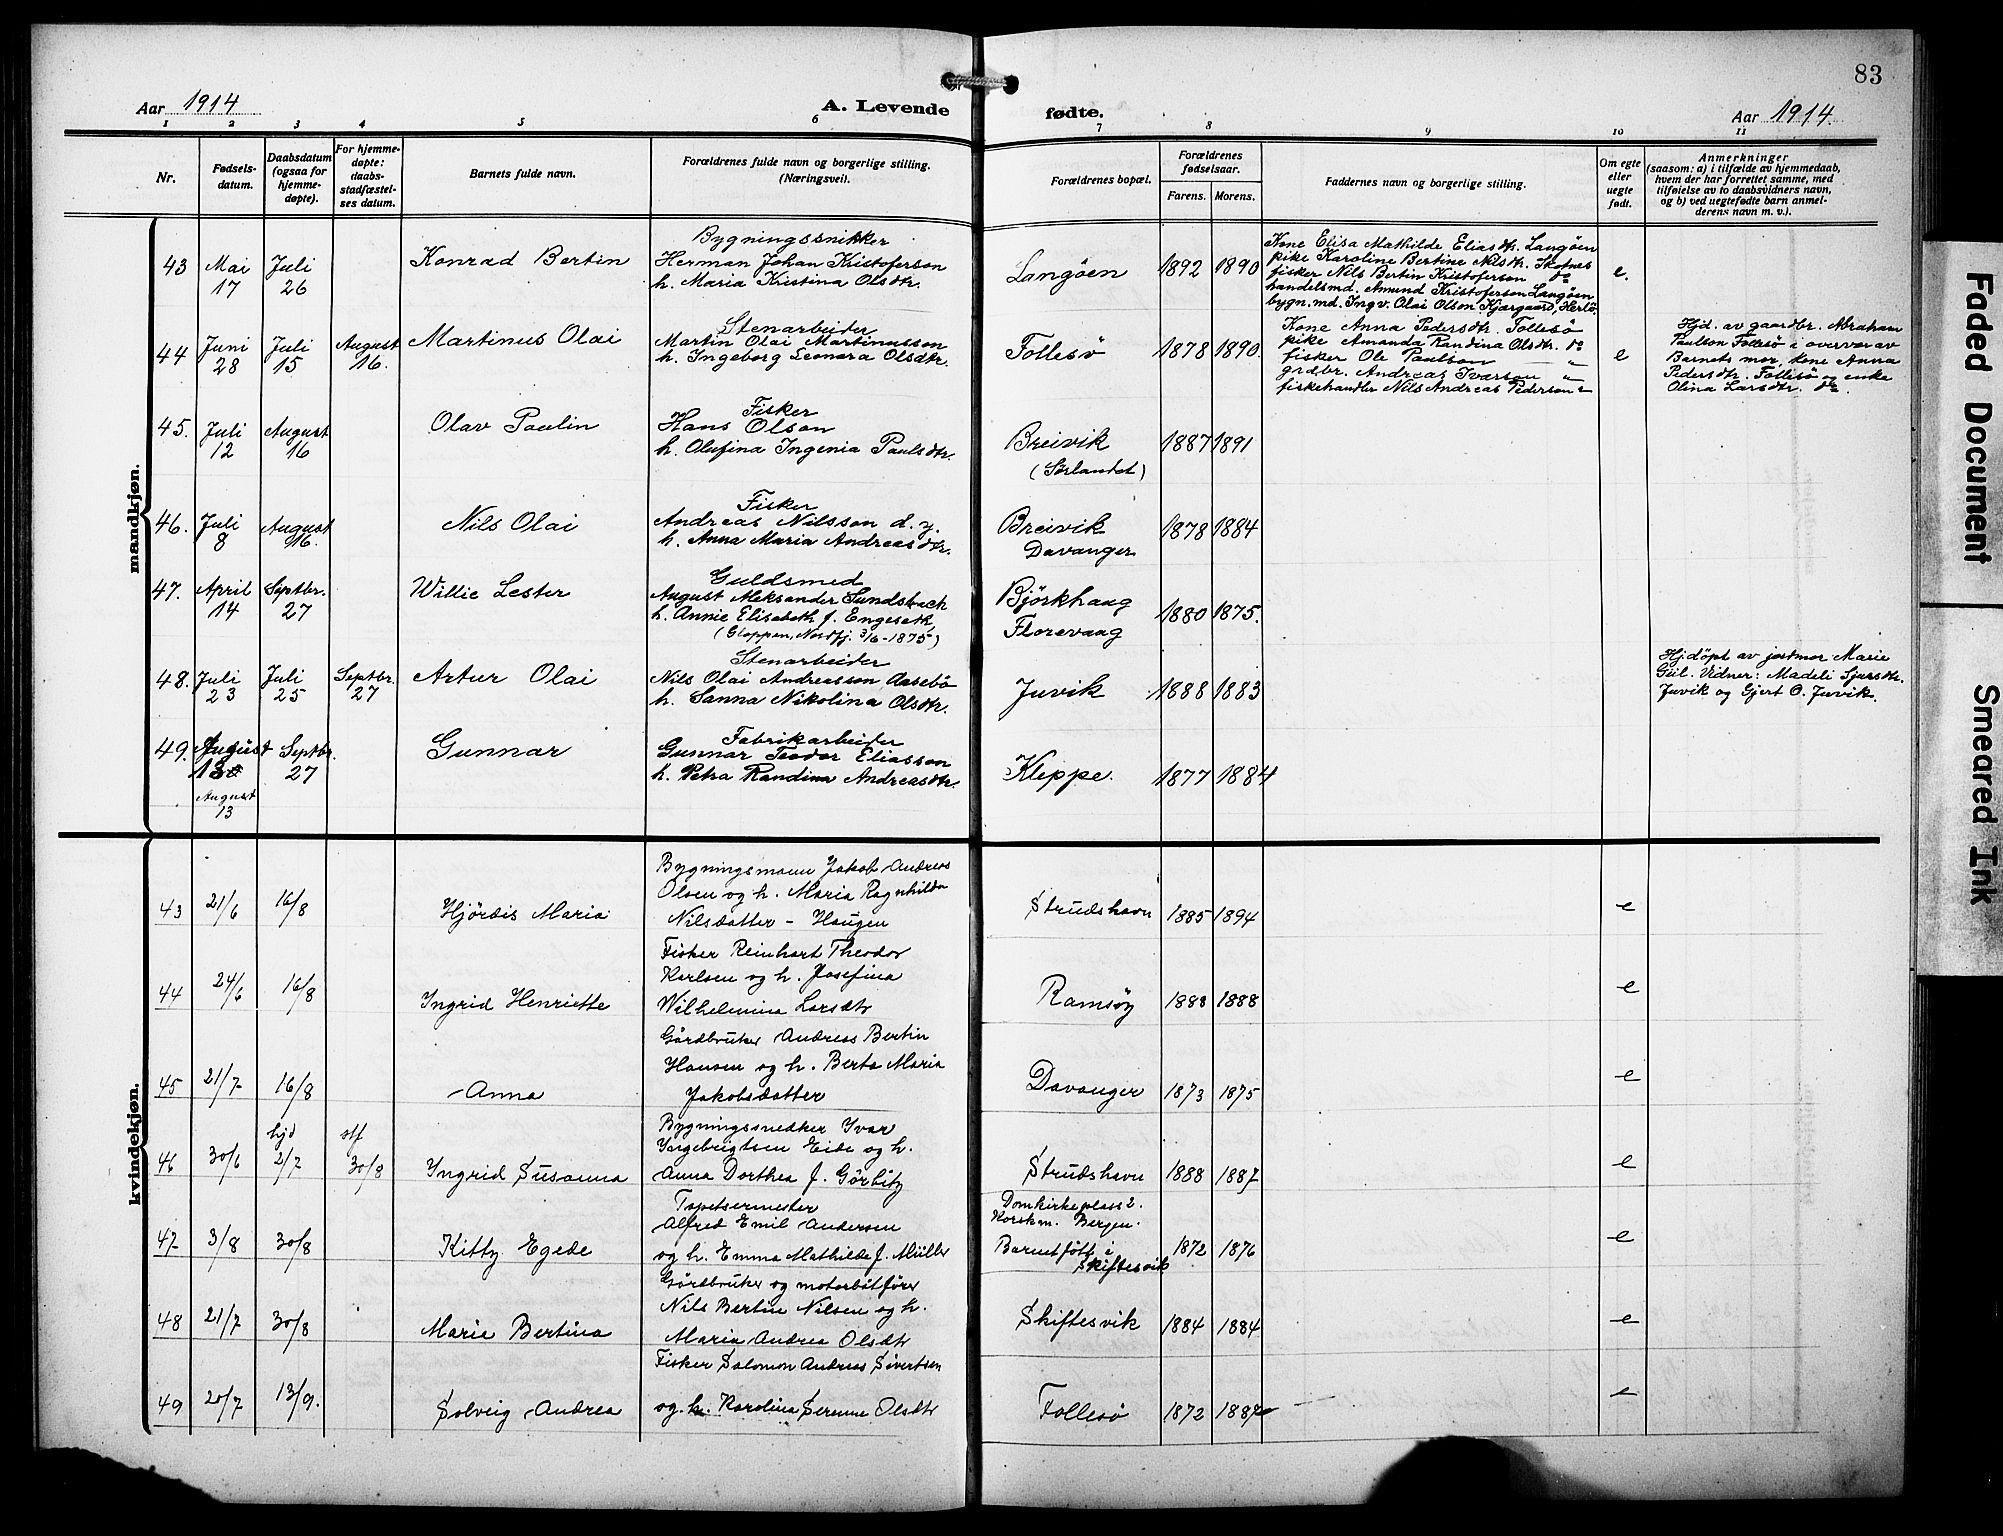 83
Aar 1914
A. Levende fødte.
Aar 1914.
1 2 3 4 5 6 7 8 9 10 11
Nr.
Fødsels-
datum.
Daabsdatum
(ogsaa for
hjemme-
døpte).
For hjemme-
døpte:
daabs-
stadfæstel-
ses datum.
Barnets fulde navn.
Forældrenes fulde navn og borgerlige stilling.
(Næringsvei).
Forældrenes bopæl.
Forældrenes
fødselsaar.
Farens. Morens.
Faddernes navn og borgerlige stilling.
Om egte
eller
uegte
født.
Anmerkninger
(saasom: a) i tilfælde av hjemmedaab,
hvem der har forrettet samme, med
tilføielse av to daabsvidners navn,
og b) ved uegtefødte barn anmel-
derens navn m. v.).
mandkjøn.
43 Mai 17 Juli 26 Konrad Bertin
Bygningssnikker
Herman Johan Kristoferson
h. Maria Kristina Olsdtr.
Langöen 1892 1890
Kone Elisa Mathilde Eliasdtr. Langöen
pike Karoline Bertine Nilsdtr. Skofnes
fisker Nils Bertin Kristoferson do
handelsmd. Amund Kristoferson Langöen
bygn.md. Ingv. Olai Olson Kjærgaard, Herlö.
e.
44 Juni 28 Juli 15 August 16. Martinus Olai
Stenarbeider
Martin Olai Martinusson
h. Ingeborg Leonora Olsdtr.
Follesö 1878 1890.
Kone Anna Pedersdtr. Follesö
pike Amanda Randina Olsdtr. do
fisker Ole Paulson "
grdbr. Andreas Ivarson "
fiskehandler Nils Andreas Pederson "
e
Hjd. av gaardbr. Abraham
Paulson Follesö i overvær av
Barnets mor, kone Anna
Pedersdtr. Follesö og enke
Olina Larsdtr. do
45. Juli 12 August 16 Olav Paulin
Fisker
Hans Olson
h. Olufina Ingenia Paulsdtr.
Breivik
(Sörlandet)
1887 1891
46. Juli 8 August 16. Nils Olai
Fisker
Andreas Nilsson d. y.
h. Anna Maria Andreasdtr.
Breivik
Davanger
1878 1884
47. April 14 Septbr. 27 Willie Lester
Guldsmed
August Aleksander Sundsbach
h. Annie Elisabeth f. Engesæth,
(Gloppen, Nordfj. 3/6-1875)
Björkhaug
Florevaag
1880 1875.
48. Juli 23 Juli 25 Septbr. 27 Artur Olai
Stenarbeider
Nils Olai Andreasson Aasebö
h. Sanna Nikolina Olsdtr.
Juvik 1888 1883
Hjdöpt av jordmor Marie
Gül. Vidner: Madeli Sjursdtr.
Juvik og Gjert O. Juvik.
49. August 13 Septbr. 27 Gunnar
Fabrikarbeider
Gunnar Teodor Eliasson
h. Petra Randina Andreasdtr.
Kleppe. 1877 1884
August
13
kvindekjøn.
43 21/6 16/8 Hjördis Maria
Bygningsmann Jakob Andreas
Olsen og h. Maria Ragnhilda
Nilsdatter - Haugen
Strudshavn 1885 1894 e
44 24/6 16/8 Ingrid Henriette
Fisker Reinhart Theodor
Karlsen og h. Josefina
Wilhelmina Larsdtr
Ramsöy 1888 1888 e
45 21/7 16/8 Anna
Gårdbruker Andreas Bertin
Hansen og h. Berta Maria
Jakobsdatter
Davanger 1873 1875 e
46 30/6 hjd 2/7 stf 30/8 Ingrid Susanna
Bygningssnedker Ivar
Ingebrigtsen Eide og h.
Anna Dorthea f. Görbitz
Strudshavn 1888 1887 e
47 3/8 30/8 Kitty Egede
Tapetsermester
Alfred Emil Andersen
og h. Emma Mathilde f. Müller
Domkirkeplass 2.
Korskm. Bergen.
Barnet fött i
Skiftesvik
1872 1876 e
48 21/7 30/8 Marie Bertina
Gårdbruker og motorbåtförer
Nils Bertin Nilsen og h.
Maria Andrea Olsdtr
Skiftesvik 1884 1884 e
49 20/7 13/9. Solveig Andrea
Fisker Salomon Andreas Sivertsen
og h. Karolina Serenne Olsdtr
Follesö 1872 1887 e
Faded Document
Smeared Ink